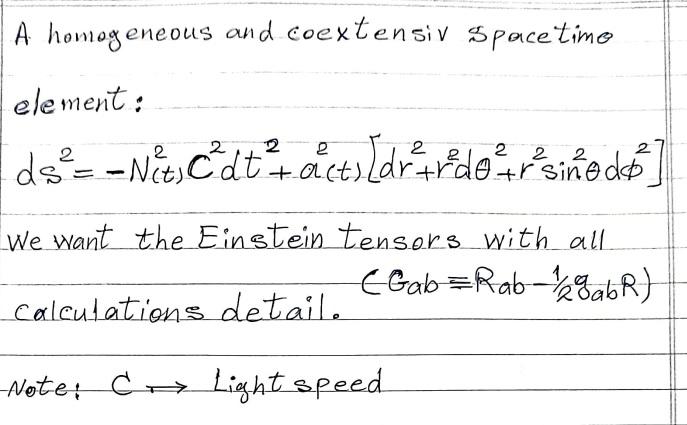 A homogeneous and coextensiv spacetime
element:
ds²= -N²(t)C²dt²+a²(t)[dr²+r²dθ²+r²sin²θdϕ²]
We want the Einstein tensors with all
(Gab≡Rab-½gabR)
calculations detail.
Note: C → Light speed